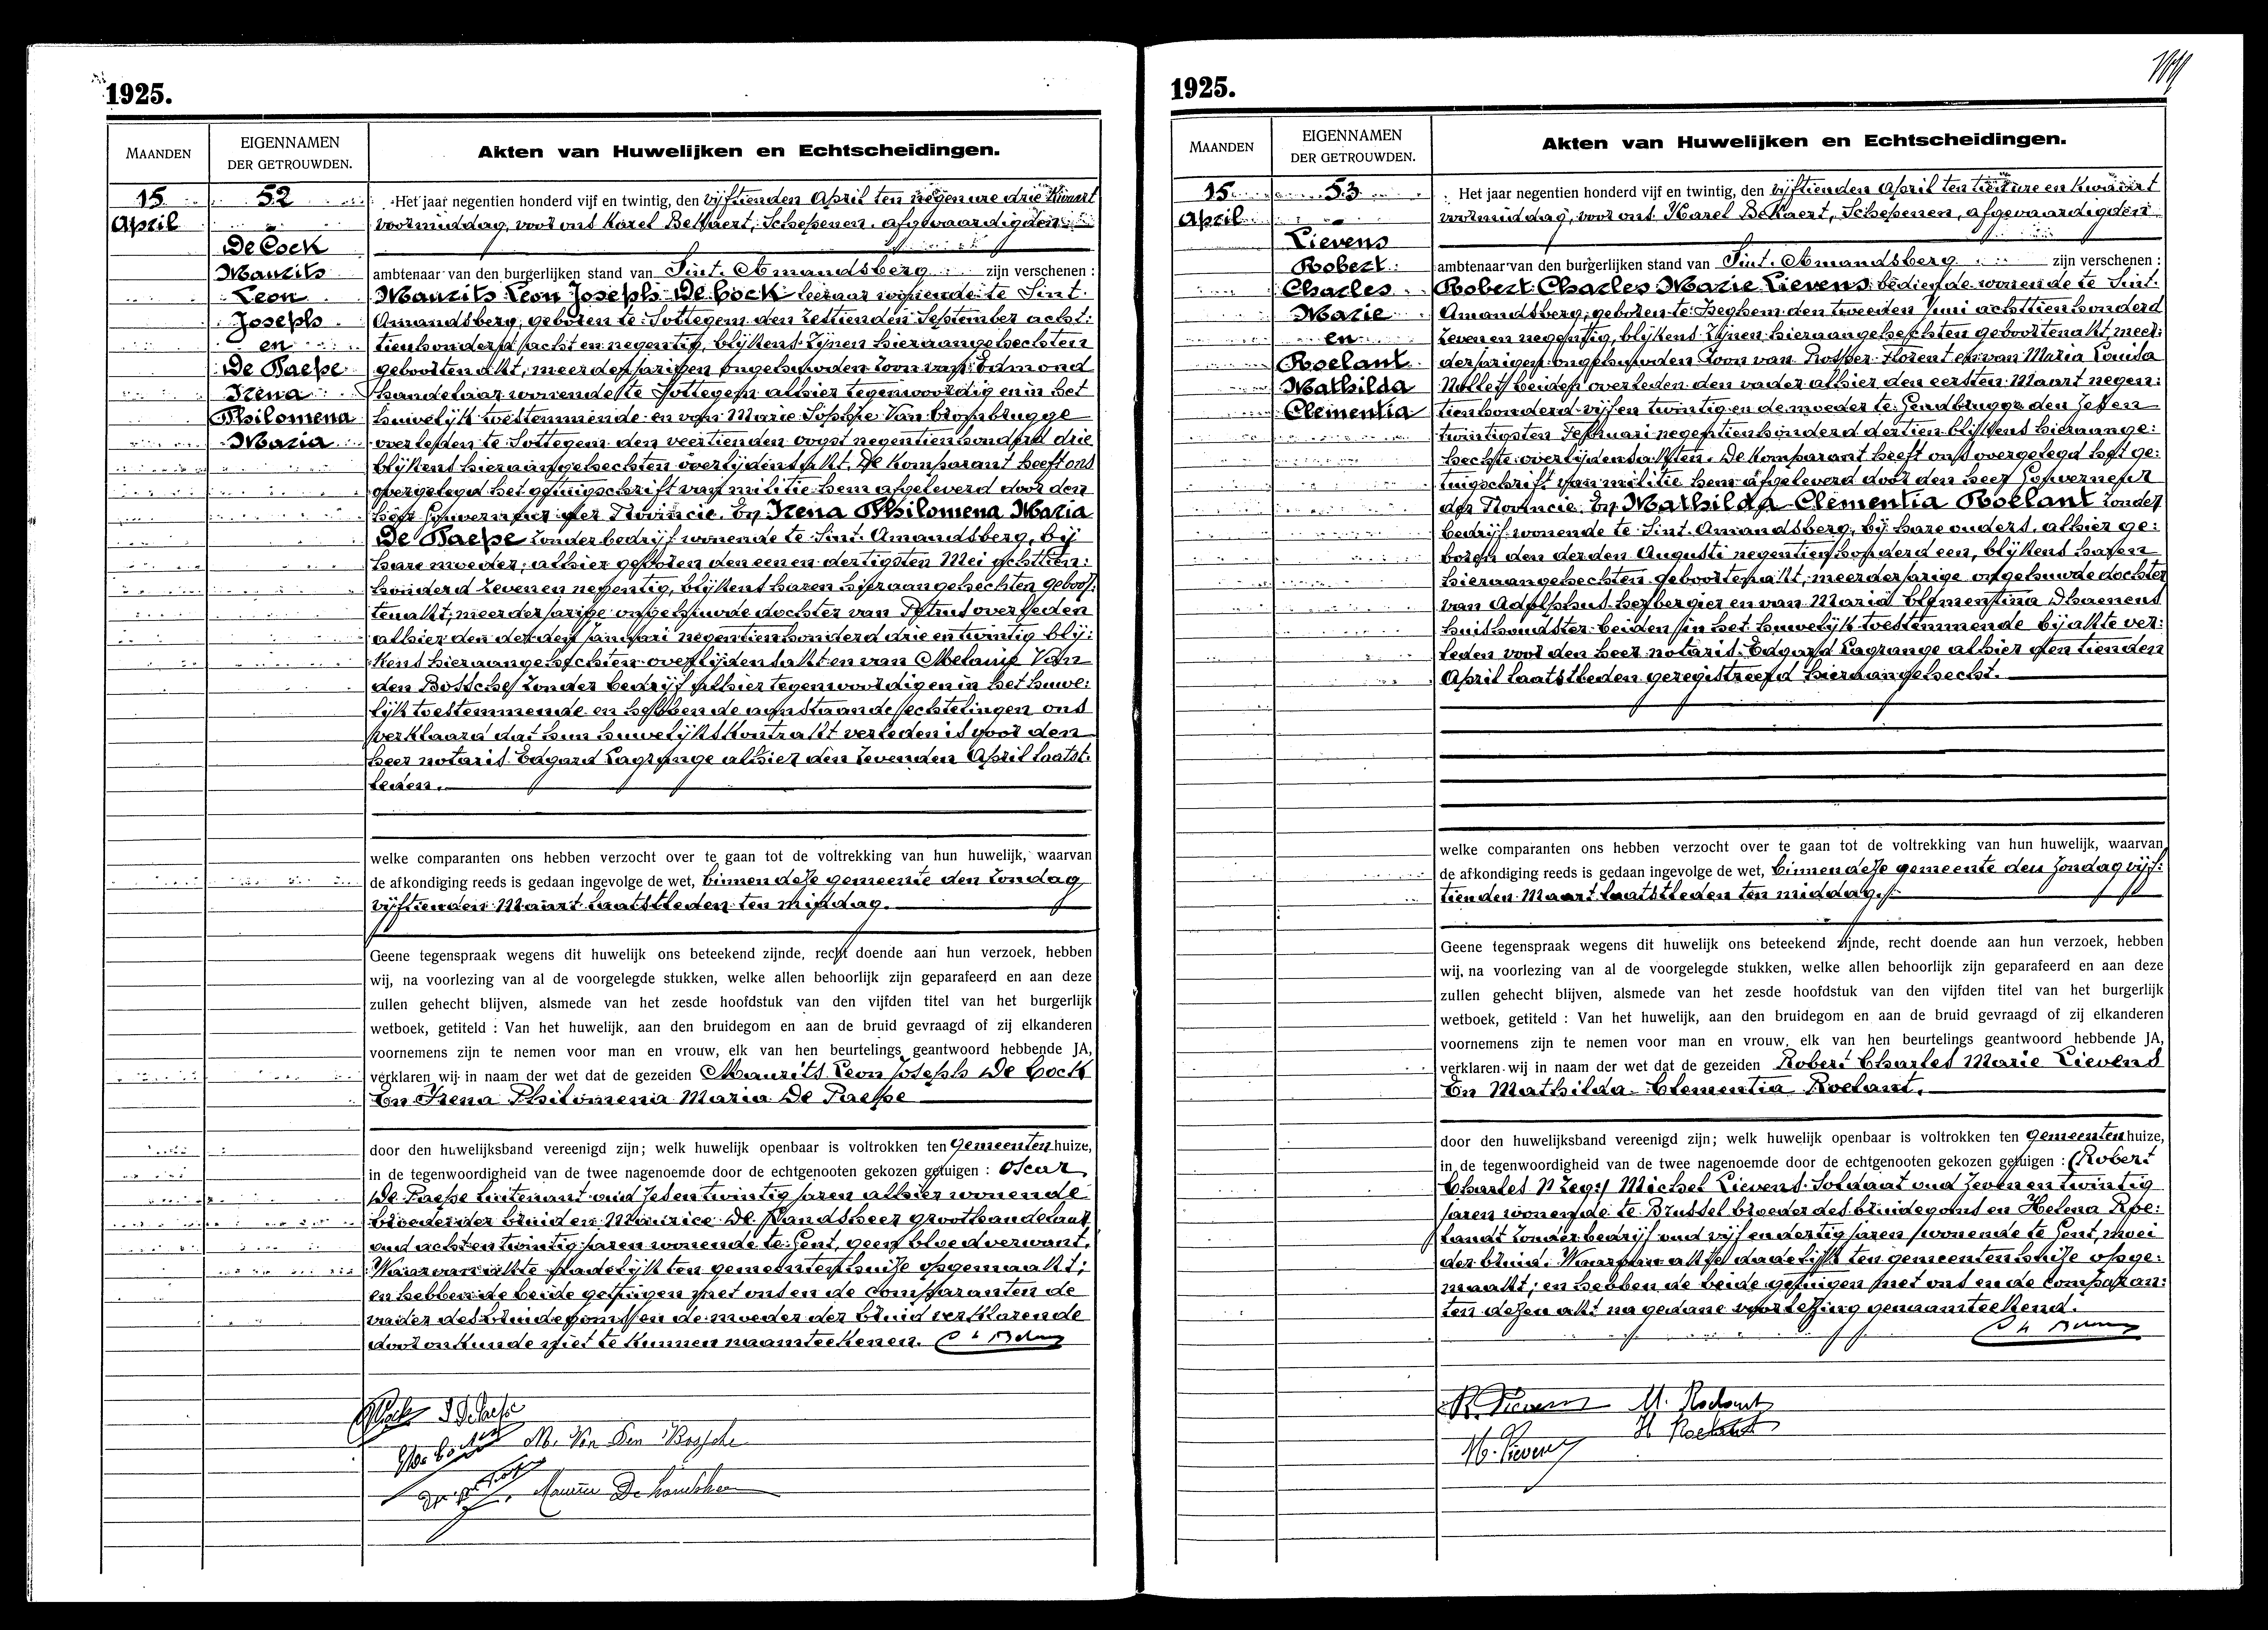 1925.
MAANDEN
EIGENNAMEN
DER GETROUWDEN.
Akten van Huwelijken en Echtscheidingen.
15
April
52
De Cock
Maurits
Leon
Joseph
en
De Paepe
Irena
Philomena
Maria
Het jaar negentien honderd vijf en twintig, den vijftienden April ten negen ure drie kwart
voormiddag, voor ons Karel BeKaert, Schepenen, afgevaardigden
ambtenaar van den burgerlijken stand van Sint. Amandsberg zijn verschenen :
Maurits Leon Joseph De Cock leeraar wonende te Sint.
Amandsberg, geboren te Sottegem den zestienden September acht:
tienhonderd acht en negentig, blijkens zijnen hieraangehechten
geboortenakt, meerderjarigen ongehuwden zoon van Edmond
handelaar wonende te Sottegem alhier tegenwoordig en in het
huwelijk toestemmende en van Marie Sophie Van Crombrugge
overleden te Sottegem den veertienden oogst negentienhonderd drie
blijkens hieraangehechten overlijdensakt. De komparant heeft ons
overgelegd het getuigschrift van militie hem afgeleverd door den
heer Gouverneur der Provincie. En Irena Philomena Maria
De Paepe zonder bedrijf wonende te Sint. Amandsberg, bij
hare moeder, alhier geboren den een en dertigsten Mei achttien:
honderd zeven en negentig, blijkens haren hieraangehechten geboor:
tenakt, meerderjarige ongehuwde dochter van Petrus overleden
alhier den derden Januari negentienhonderd drie en twintig blij:
kens hieraangehechten overlijdensakt en van Melanie Van
den Bossche zonder bedrijf alhier tegenwoordig en in het huwe:
lijk toestemmende en hebbende aanstaande echtelingen ons
verklaard dat hun huwelijkskontrakt verleden is voor den
heer notaris Edgard Lagrange alhier den zevenden April laatst.
leden.
welke comparanten ons hebben verzocht over te gaan tot de voltrekking van hun huwelijk, waarvan
de afkondiging reeds is gedaan ingevolge de wet, binnen deze gemeente den zondag
vijftienden Maart laatstleden ten middag.
Geene tegenspraak wegens dit huwelijk ons beteekend zijnde, recht doende aan hun verzoek, hebben
wij, na voorlezing van al de voorgelegde stukken, welke allen behoorlijk zijn geparafeerd en aan deze
zullen gehecht blijven, alsmede van het zesde hoofdstuk van den vijfden titel van het burgerlijk
wetboek, getiteld : Van het huwelijk, aan den bruidegom en aan de bruid gevraagd of zij elkanderen
voornemens zijn te nemen voor man en vrouw, elk van hen beurtelings geantwoord hebbende JA,
verklaren wij in naam der wet dat de gezeiden Maurits Leon Joseph De Cock
En Irena Philomena Maria De Paepe
door den huwelijksband vereenigd zijn; welk huwelijk openbaar is voltrokken ten Gemeentenhuize,
in de tegenwoordigheid van de twee nagenoemde door de echtgenooten gekozen getuigen : Oscar
De Paepe luitenant oud zes en twintig jaren alhier wonende
broeder der bruid en Maurice De Handsheer groothandelaar
oud acht en twintig jaren wonende te Gent, geen bloedverwant.
Waarvan akte dadelijk ten gemeentenhuize opgemaakt;
en hebben de beide getuigen met ons en de comparanten de
vader des bruidegoms en de moeder der bruid verklarende
door onkunde niet te kunnen naamteekenen.
M. Van Den Bossche
1925.
MAANDEN
EIGENNAMEN
DER GETROUWDEN.
Akten van Huwelijken en Echtscheidingen.
15
April
53
Lievens
Robert
Charles
Marie
en
Roelant
Mathilda
Clementia
Het jaar negentien honderd vijf en twintig, den vijftienden April ten tien ure en kwaart
voormiddag, voor ons Karel BeKaert, Schepenen, afgevaardigden
ambtenaar van den burgerlijken stand van Sint. Amandsberg zijn verschenen :
Robert Charles Marie Lievens bediende wonende te Sint.
Amandsberg, geboren te Iseghem den tweeden Juni achttienhonderd
zeven en negentig, blijkens zijnen hieraangehechten geboortenakt meer:
derjarigen ongehuwden zoon van Prosper Florent en van Maria Louisa
Nollet beiden overleden den vader alhier den eersten Maart negen:
tienhonderd vijf en twintig en de moeder te Gendbrugge den zes en
twintigsten Februari negentienhonderd dertien blijkens hieraange:
hechte overlijdensakten. De komparant heeft ons overgelegd het ge:
tuigschrift van militie hem afgeleverd door den heer Gouverneur
der Provincie. En Mathilda Clementia Roelant zonder
bedrijf wonende te Sint. Amandsberg, bij hare ouders, alhier ge:
boren den derden Augusti negentienhonderd een, blijkens haren
hieraangehechten geboortenakt, meerderjarige ongehuwde dochter
van Adolphus herbergier en van Maria Clementina Dhaenens
huishoudster beiden in het huwelijk toestemmende bij akte ver:
leden voor den heer notaris Edgard Lagrange alhier den tienden
April laatstleden geregistreerd hieraangehecht.
welke comparanten ons hebben verzocht over te gaan tot de voltrekking van hun huwelijk, waarvan
de afkondiging reeds is gedaan ingevolge de wet, binnen deze gemeente den zondag vijf:
tienden Maart laatstleden ten middag.
Geene tegenspraak wegens dit huwelijk ons beteekend zijnde, recht doende aan hun verzoek, hebben
wij, na voorlezing van al de voorgelegde stukken, welke allen behoorlijk zijn geparafeerd en aan deze
zullen gehecht blijven, alsmede van het zesde hoofdstuk van den vijfden titel van het burgerlijk
wetboek, getiteld : Van het huwelijk, aan den bruidegom en aan de bruid gevraagd of zij elkanderen
voornemens zijn te nemen voor man en vrouw, elk van hen beurtelings geantwoord hebbende JA,
verklaren wij in naam der wet dat de gezeiden Robert Charles Marie Lievens
En Mathilda Clementia Roelant.
door den huwelijksband vereenigd zijn; welk huwelijk openbaar is voltrokken ten Gemeentenhuize,
in de tegenwoordigheid van de twee nagenoemde door de echtgenooten gekozen getuigen : (Robert
Charles Michel Lievens Soldaat oud zeven en twintig
jaren wonende te Brussel broeder des bruidegoms en Helena Roe:
landt zonder bedrijf oud vijf en dertig jaren wonende te Gent, moei
der bruid. Waarvan akte dadelijk ten gemeentenhuize opge:
maakt; en hebben de beide getuigen met ons en de comparan:
ten dezen akt na gedane voorlezing genaamteekend.
R. Lievens M. Roelant
M. Lievens H Roelandt